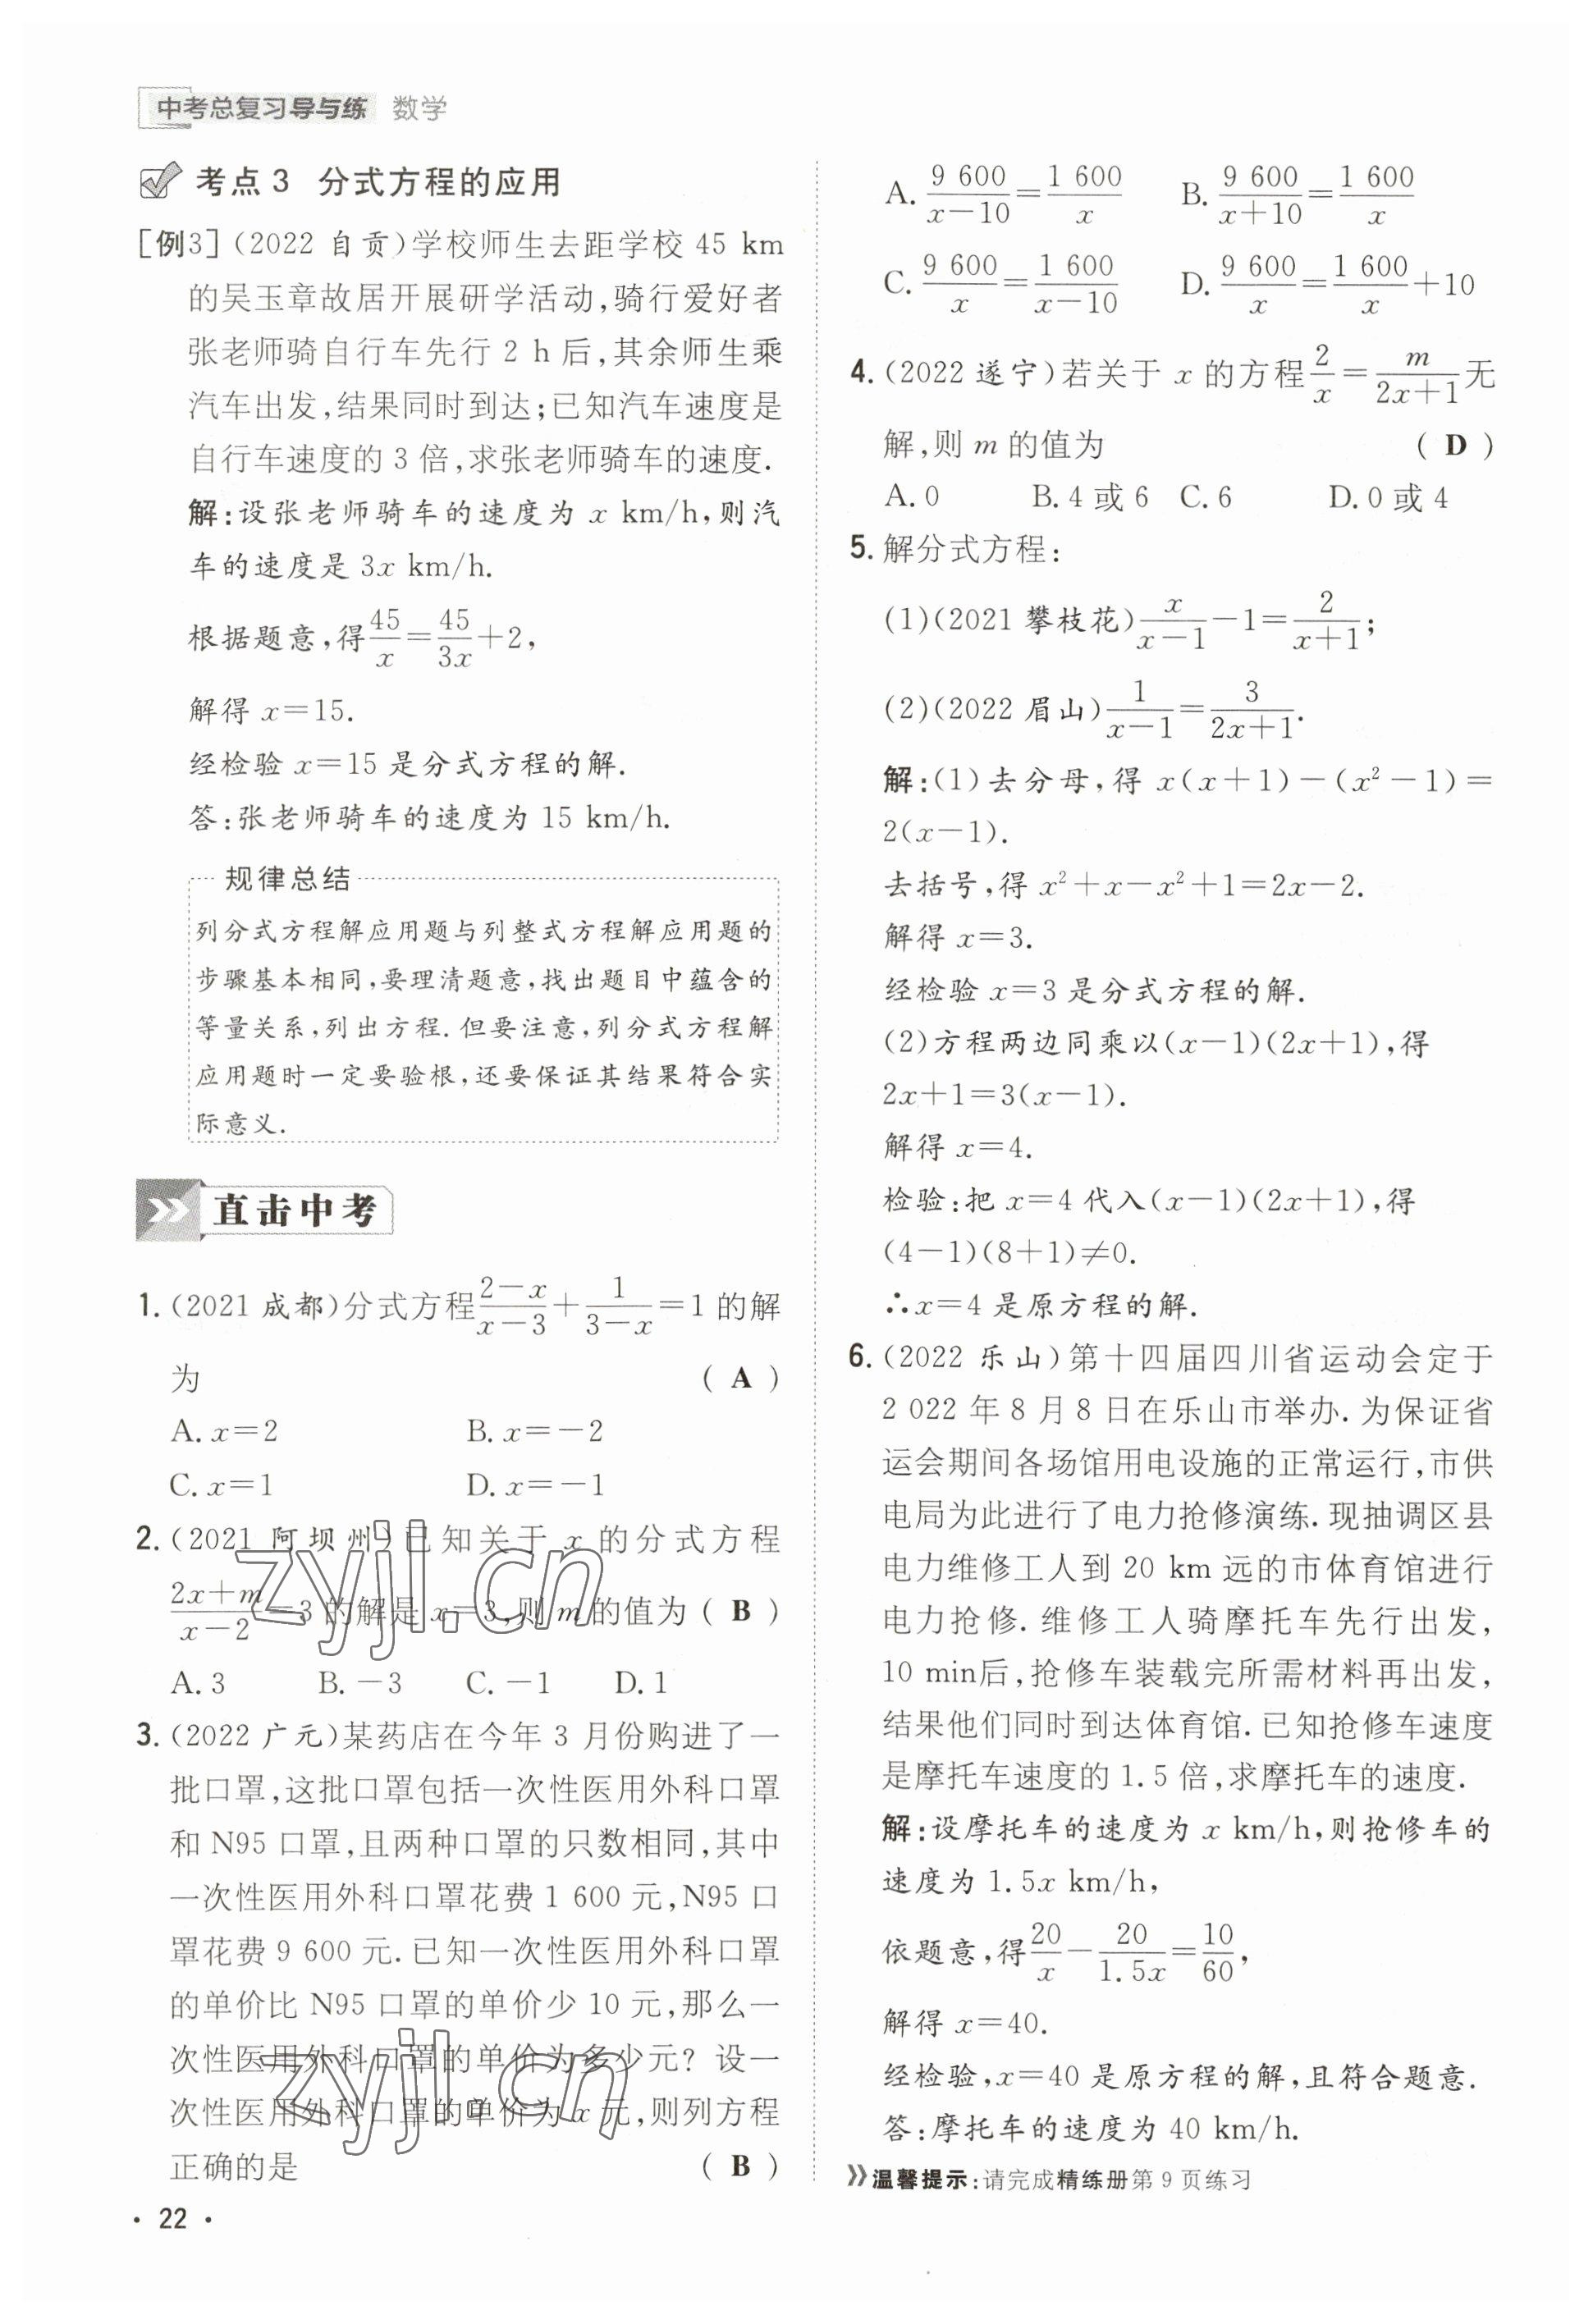 中考总复习导与练 数学
考点 3 分式方程的应用
[例3](2022 自贡)学校师生去距学校 45 km
的吴玉章故居开展研学活动,骑行爱好者
张老师骑自行车先行 2 h 后,其余师生乘
汽车出发,结果同时到达;已知汽车速度是
自行车速度的 3 倍,求张老师骑车的速度.
解:设张老师骑车的速度为 x km/h,则汽
车的速度是 3x km/h.
根据题意,得45/x=45/3x+2,
解得 x=15.
经检验 x=15 是分式方程的解.
答:张老师骑车的速度为 15 km/h.
规律总结
列分式方程解应用题与列整式方程解应用题的
步骤基本相同,要理清题意,找出题目中蕴含的
等量关系,列出方程.但要注意,列分式方程解
应用题时一定要验根,还要保证其结果符合实
际意义.
直击中考
1.(2021 成都)分式方程(2-x)/(x-3)+1/(3-x)=1 的解
为 ( A )
A. x=2 B. x=-2
C. x=1 D. x=-1
2.(2021 阿坝州)已知关于 x 的分式方程
(2x+m)/(x-2)=3 的解是 x=3,则 m 的值为 ( B )
A. 3 B. -3 C. -1 D. 1
3.(2022 广元)某药店在今年 3 月份购进了一
批口罩,这批口罩包括一次性医用外科口罩
和 N95 口罩,且两种口罩的只数相同,其中
一次性医用外科口罩花费 1 600 元,N95 口
罩花费 9 600 元.已知一次性医用外科口罩
的单价比 N95 口罩的单价少 10 元,那么一
次性医用外科口罩的单价为多少元? 设一
次性医用外科口罩的单价为 x 元,则列方程
正确的是 ( B )
· 22 ·
A. 9 600/(x-10)=1 600/x B. 9 600/(x+10)=1 600/x
C. 9 600/x=1 600/(x-10) D. 9 600/x=1 600/x+10
4.(2022 遂宁)若关于 x 的方程2/x=m/(2x+1)无
解,则 m 的值为 ( D )
A. 0 B. 4 或 6 C. 6 D. 0 或 4
5. 解分式方程:
(1)(2021 攀枝花)x/(x-1)-1=2/(x+1);
(2)(2022 眉山)1/(x-1)=3/(2x+1).
解:(1)去分母,得 x(x+1)-(x²-1)=
2(x-1).
去括号,得 x²+x-x²+1=2x-2.
解得 x=3.
经检验 x=3 是分式方程的解.
(2)方程两边同乘以(x-1)(2x+1),得
2x+1=3(x-1).
解得 x=4.
检验:把 x=4 代入(x-1)(2x+1),得
(4-1)(8+1)≠0.
∴x=4 是原方程的解.
6.(2022 乐山)第十四届四川省运动会定于
2 022 年 8 月 8 日在乐山市举办.为保证省
运会期间各场馆用电设施的正常运行,市供
电局为此进行了电力抢修演练.现抽调区县
电力维修工人到 20 km 远的市体育馆进行
电力抢修.维修工人骑摩托车先行出发,
10 min后,抢修车装载完所需材料再出发,
结果他们同时到达体育馆.已知抢修车速度
是摩托车速度的 1.5 倍,求摩托车的速度.
解:设摩托车的速度为 x km/h,则抢修车的
速度为 1.5x km/h,
依题意,得20/x-20/1.5x=10/60,
解得 x=40.
经检验,x=40 是原方程的解,且符合题意.
答:摩托车的速度为 40 km/h.
温馨提示:请完成精练册第 9 页练习
zyjl.cn
zyjl.cn